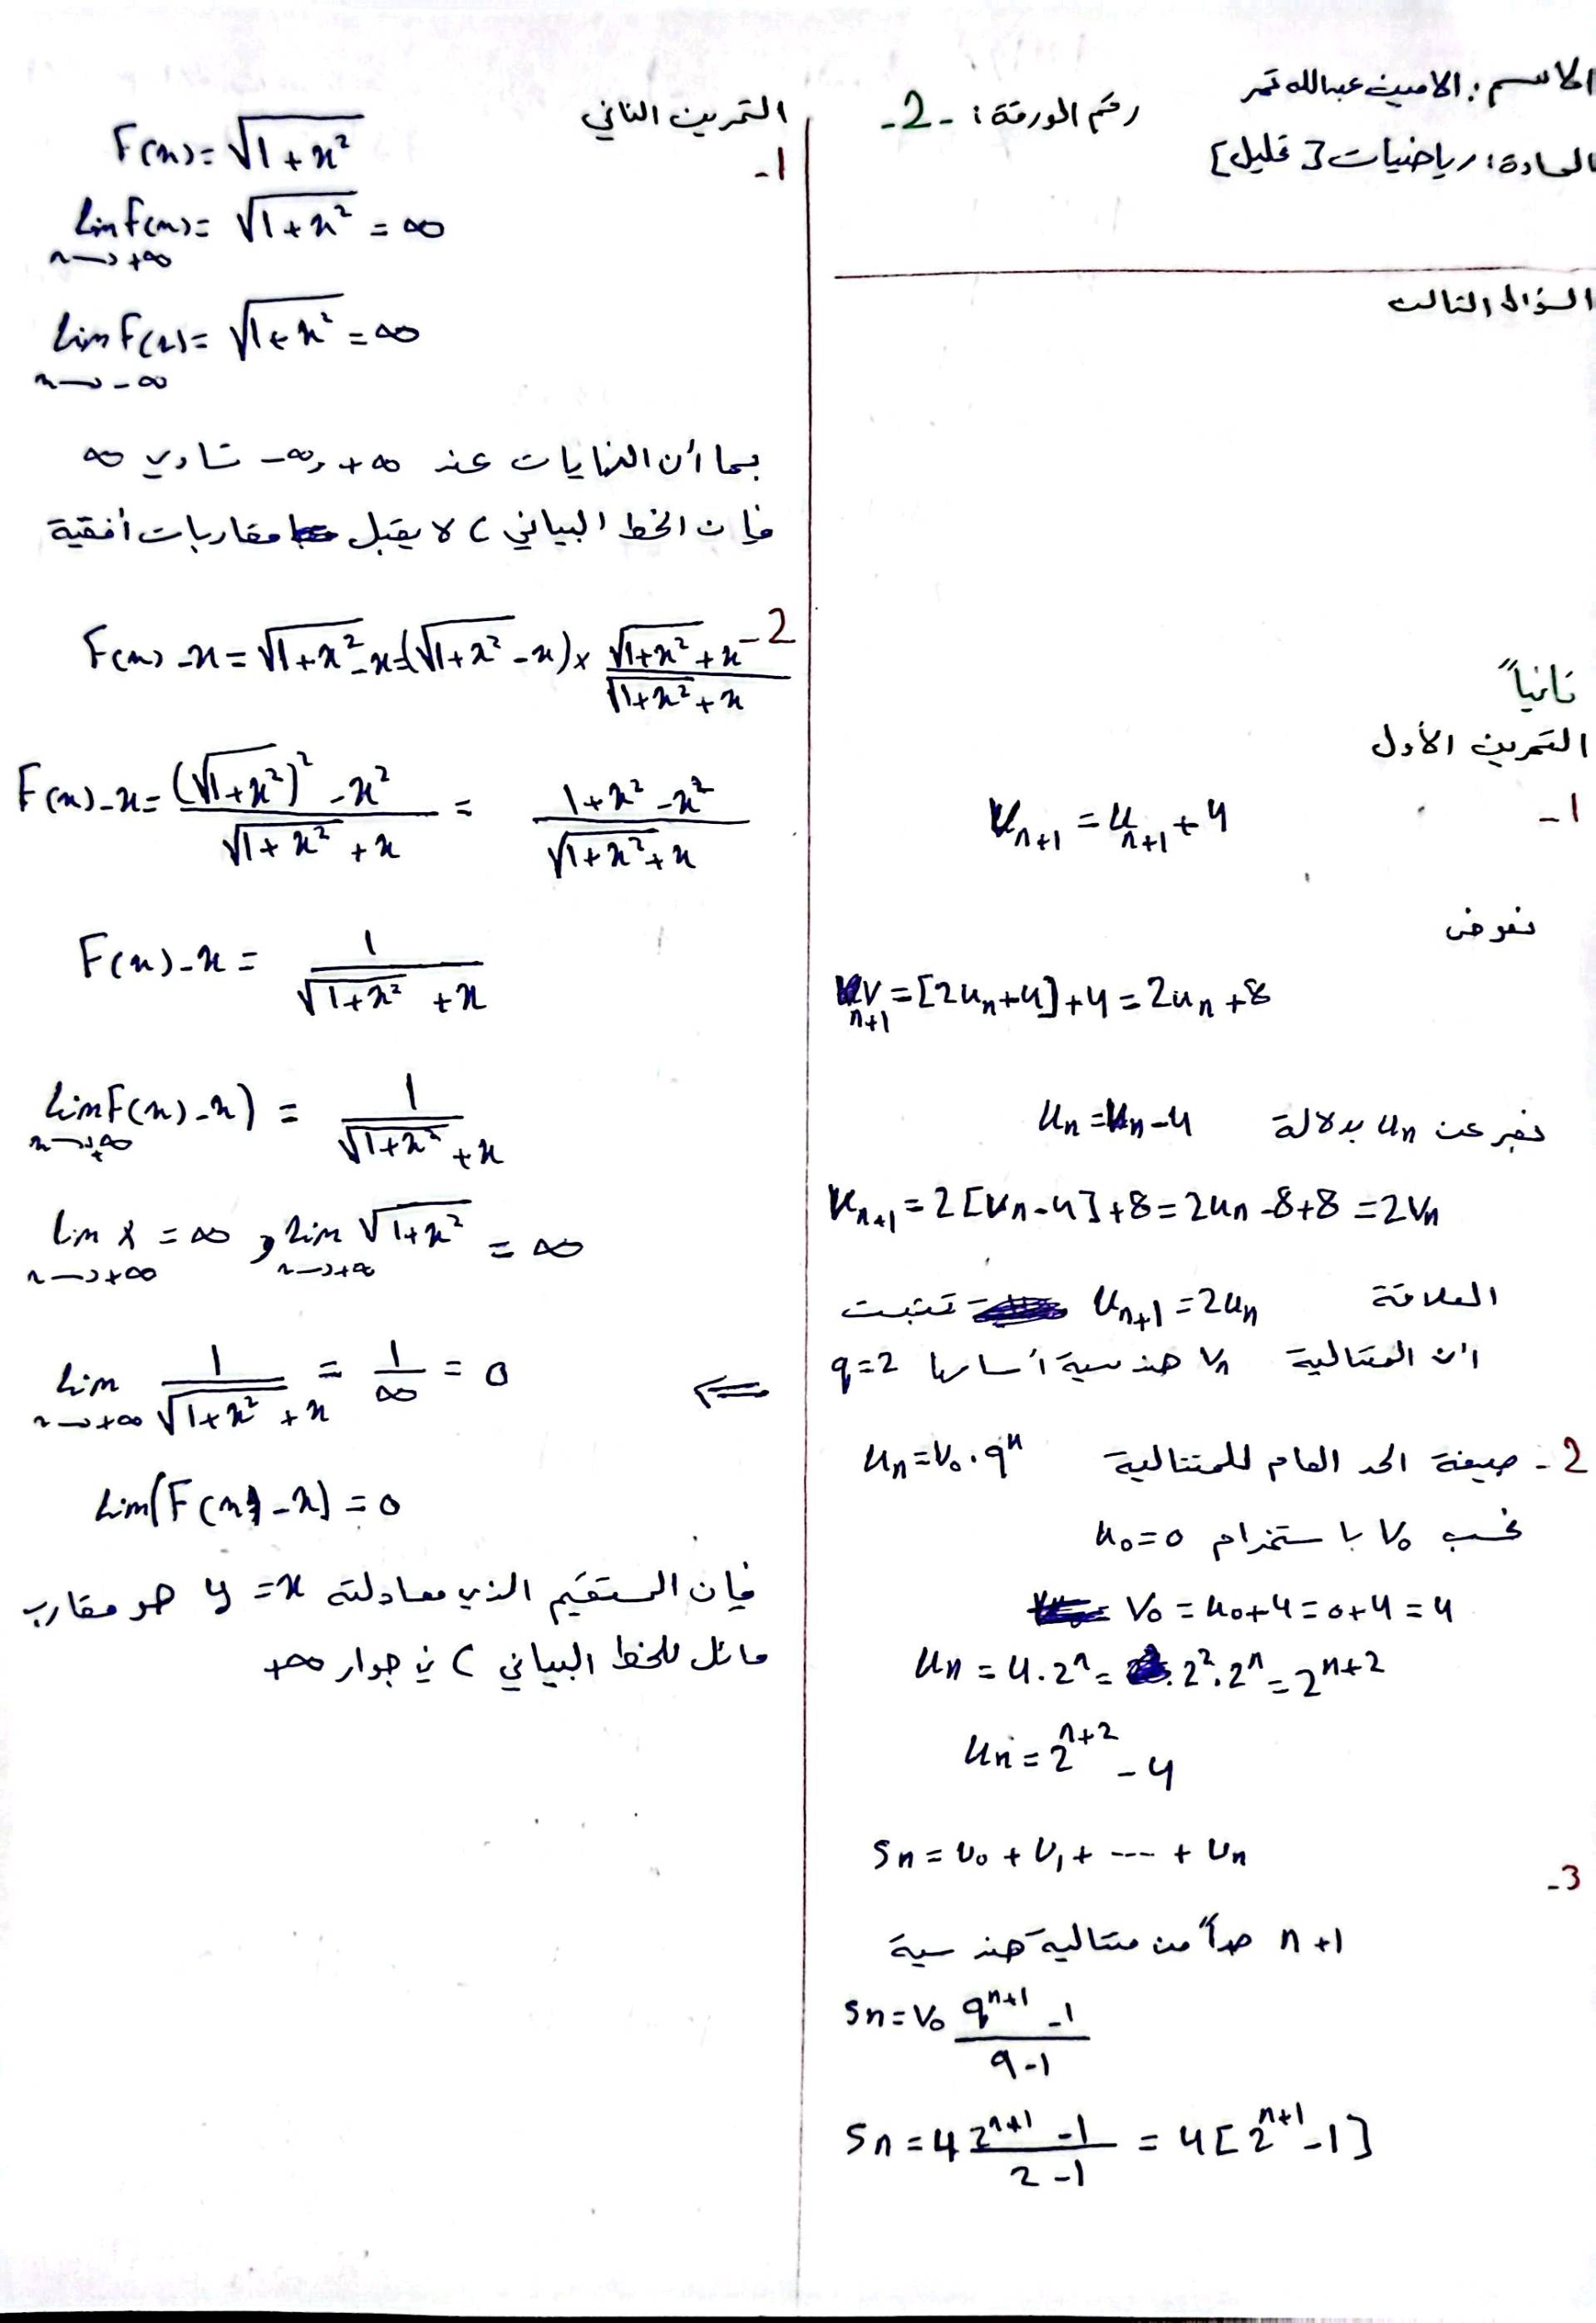 الاسم: الامين عبدالله تمر
رقم الورقة: -2-
المادة: رياضيات [تحليل]
السؤال الثالث
ثانياً
التمرين الأول
1-
V_{n+1} = u_{n+1} + 4
نعوض
V_{n+1} = [2u_n + 4] + 4 = 2u_n + 8
نعبر عن u_n بدلالة u_n = V_n - 4
V_{n+1} = 2[V_n - 4] + 8 = 2u_n - 8 + 8 = 2V_n
العلاقة u_{n+1} = 2u_n تثبت
أن المتتالية V_n هندسية أساسها q=2
2- صيغة الحد العام للمتتالية u_n = V_0 . q^n
نحسب V_0 باستخدام u_0 = 0
V_0 = u_0 + 4 = 0 + 4 = 4
u_n = 4 . 2^n = 2^2 . 2^n = 2^{n+2}
u_n = 2^{n+2} - 4
3-
S_n = v_0 + v_1 + ---- + v_n
n+1 حداً من متتالية هندسية
S_n = V_0 \frac{q^{n+1} - 1}{q - 1}
S_n = 4 \frac{2^{n+1} - 1}{2 - 1} = 4[2^{n+1} - 1]
التمرين الثاني
1-
F(x) = √(1+x²)
lim F(x) = √(1+x²) = ∞
x→+∞
lim F(x) = √(1+x²) = ∞
x→-∞
بما أن النهايات عند +∞ و -∞ تساوي ∞
فإن الخط البياني C لا يقبل مقاربات أفقية
2- F(x) - x = √(1+x²) - x = (√(1+x²) - x) × \frac{√(1+x²) + x}{√(1+x²) + x}
F(x) - x = \frac{(√(1+x²))² - x²}{√(1+x²) + x} = \frac{1 + x² - x²}{√(1+x²) + x}
F(x) - x = \frac{1}{√(1+x²) + x}
lim F(x) - x) = \frac{1}{√(1+x²) + x}
x→+∞
lim x = ∞ , lim √(1+x²) = ∞
x→+∞ x→+∞
⇐ lim \frac{1}{√(1+x²) + x} = \frac{1}{∞} = 0
x→+∞
lim(F(x) - x) = 0
فإن المستقيم الذي معادلته y = x هو مقارب
مائل للخط البياني C في جوار +∞